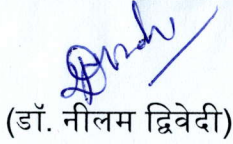 (डॉ. नीलम द्विवेदी)